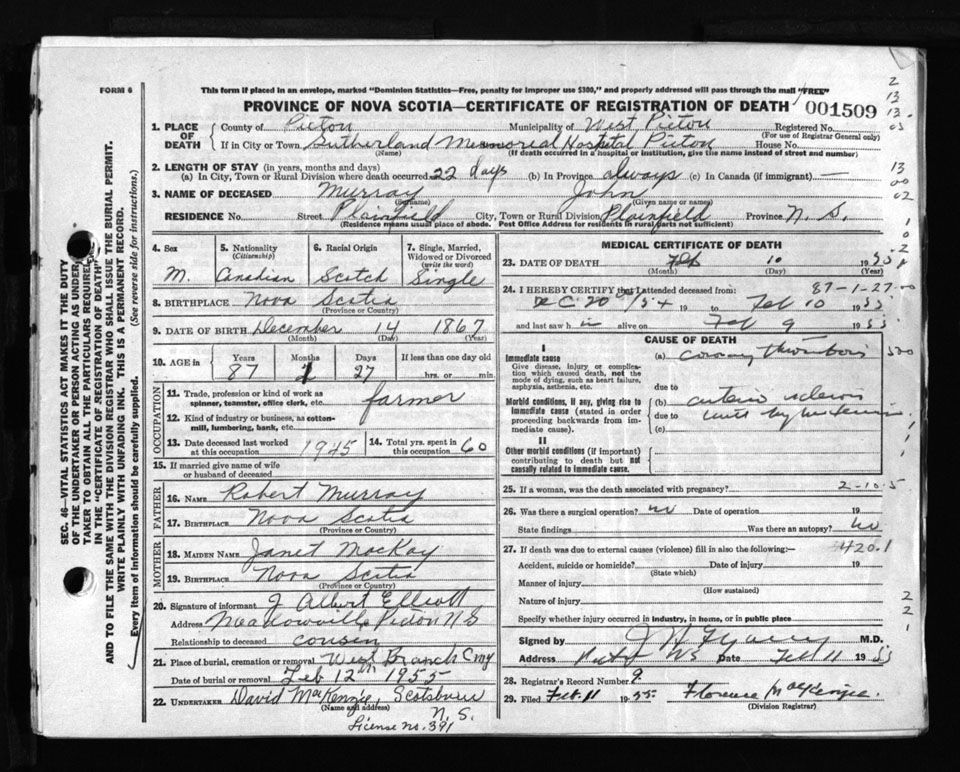 FORM 6
This form if placed in an envelope, marked "Dominion Statistics—Free, penalty for improper use $300," and properly addressed will pass through the mail "FREE"
PROVINCE OF NOVA SCOTIA—CERTIFICATE OF REGISTRATION OF DEATH
001509
1. PLACE OF DEATH
County of Pictou Municipality of West Pictou Registered No.
(For use of Registrar General only)
If in City or Town Sutherland Memorial Hospital Pictou House No.
(Name) (If death occurred in a hospital or institution, give the name instead of street and number)
2. LENGTH OF STAY (in years, months and days)
(a) In City, Town or Rural Division where death occurred 22 days (b) In Province always (c) In Canada (if immigrant) —
3. NAME OF DECEASED Murray John
(Surname) (Given name or names)
RESIDENCE No. Street Plainfield City, Town or Rural Division Plainfield Province N. S.
(Residence means usual place of abode. Post Office Address for residents in rural parts not sufficient)
4. Sex
M.
5. Nationality
(Citizenship)
Canadian
6. Racial Origin
Scotch
7. Single, Married, Widowed or Divorced
(write the word)
Single
8. BIRTHPLACE Nova Scotia
(Province or Country)
9. DATE OF BIRTH December 14 1867
(Month) (Day) (Year)
10. AGE in
Years Months Days If less than one day old
87 1 27 hrs. or min.
OCCUPATION
11. Trade, profession or kind of work as spinner, teamster, office clerk, etc. farmer
12. Kind of industry or business, as cotton-mill, lumbering, bank, etc.
13. Date deceased last worked at this occupation 1945
14. Total yrs. spent in 60
15. If married give name of wife or husband of deceased
FATHER
16. NAME Robert Murray
17. BIRTHPLACE Nova Scotia
(Province or Country)
MOTHER
18. MAIDEN NAME Janet MacKay
19. BIRTHPLACE Nova Scotia
(Province or Country)
20. Signature of informant J Albert Elliott
Address Meadowville Pictou N S
Relationship to deceased cousin
21. Place of burial, cremation or removal West Branch Cmy
Date of burial or removal Feb 12th 1955
22. UNDERTAKER David MacKenzie, Scotsburn N. S.
(Name and address)
License no. 391
MEDICAL CERTIFICATE OF DEATH
23. DATE OF DEATH Feb 10 1955
(Month) (Day) (Year)
87-1-27
24. I HEREBY CERTIFY that I attended deceased from:
Dec. 20 /54 19 to Feb 10 1955
and last saw him alive on Feb 9 1955
CAUSE OF DEATH
I
Immediate cause
Give disease, injury or complication which caused death, not the mode of dying, such as heart failure, asphyxia, asthenia, etc.
(a) coronary thrombosis
due to
Morbid conditions, if any, giving rise to immediate cause (stated in order proceeding backwards from immediate cause).
(b) arterio sclerosis
due to with hypertension
(c)
II
Other morbid conditions (if important) contributing to death but not causally related to immediate cause.
25. If a woman, was the death associated with pregnancy?
2-10-5
26. Was there a surgical operation? no Date of operation 19
State findings Was there an autopsy? no
27. If death was due to external causes (violence) fill in also the following:—
420.1
Accident, suicide or homicide? Date of injury 19
(State which)
Manner of injury
(How sustained)
Nature of injury
Specify whether injury occurred in industry, in home, or in public place
Signed by M.D.
Address Pictou NS Date Feb 11 1955
28. Registrar's Record Number 9
29. Filed Feb. 11 1955 Florence MacKenzie.
(Division Registrar)
SEC. 46—VITAL STATISTICS ACT MAKES IT THE DUTY
OF THE UNDERTAKER OR PERSON ACTING AS UNDER-
TAKER TO OBTAIN ALL THE PARTICULARS REQUIRED
IN THE "CERTIFICATE OF REGISTRATION OF DEATH"
AND TO FILE THE SAME WITH THE DIVISION REGISTRAR WHO SHALL ISSUE THE BURIAL PERMIT.
WRITE PLAINLY WITH UNFADING INK. THIS IS A PERMANENT RECORD.
Every item of information should be carefully supplied. (See reverse side for instructions.)